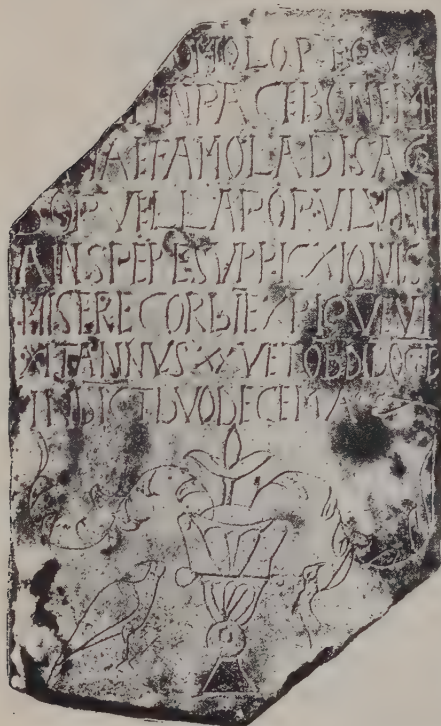 VMOLO REQVI
IN PACE BONE ME
FAMOLA DI SAC
PVELLA POPVLVNI
A IN SPE RESVRRECXIONIS
MISERECORDIE XPI QVI VI
XIT ANNVS XXV ET OB
INDICT DVODECEMA